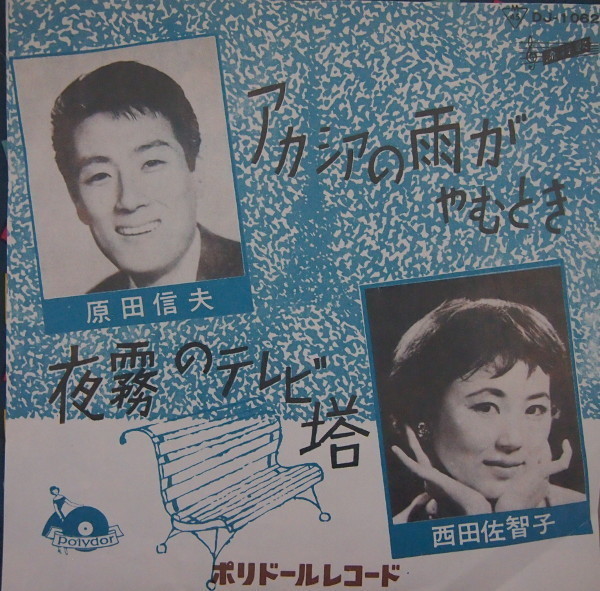 DJ-1062
アカシアの雨が
やむとき
原田信夫
夜霧のテレビ
塔
西田佐智子
Polydor
ポリドールレコード